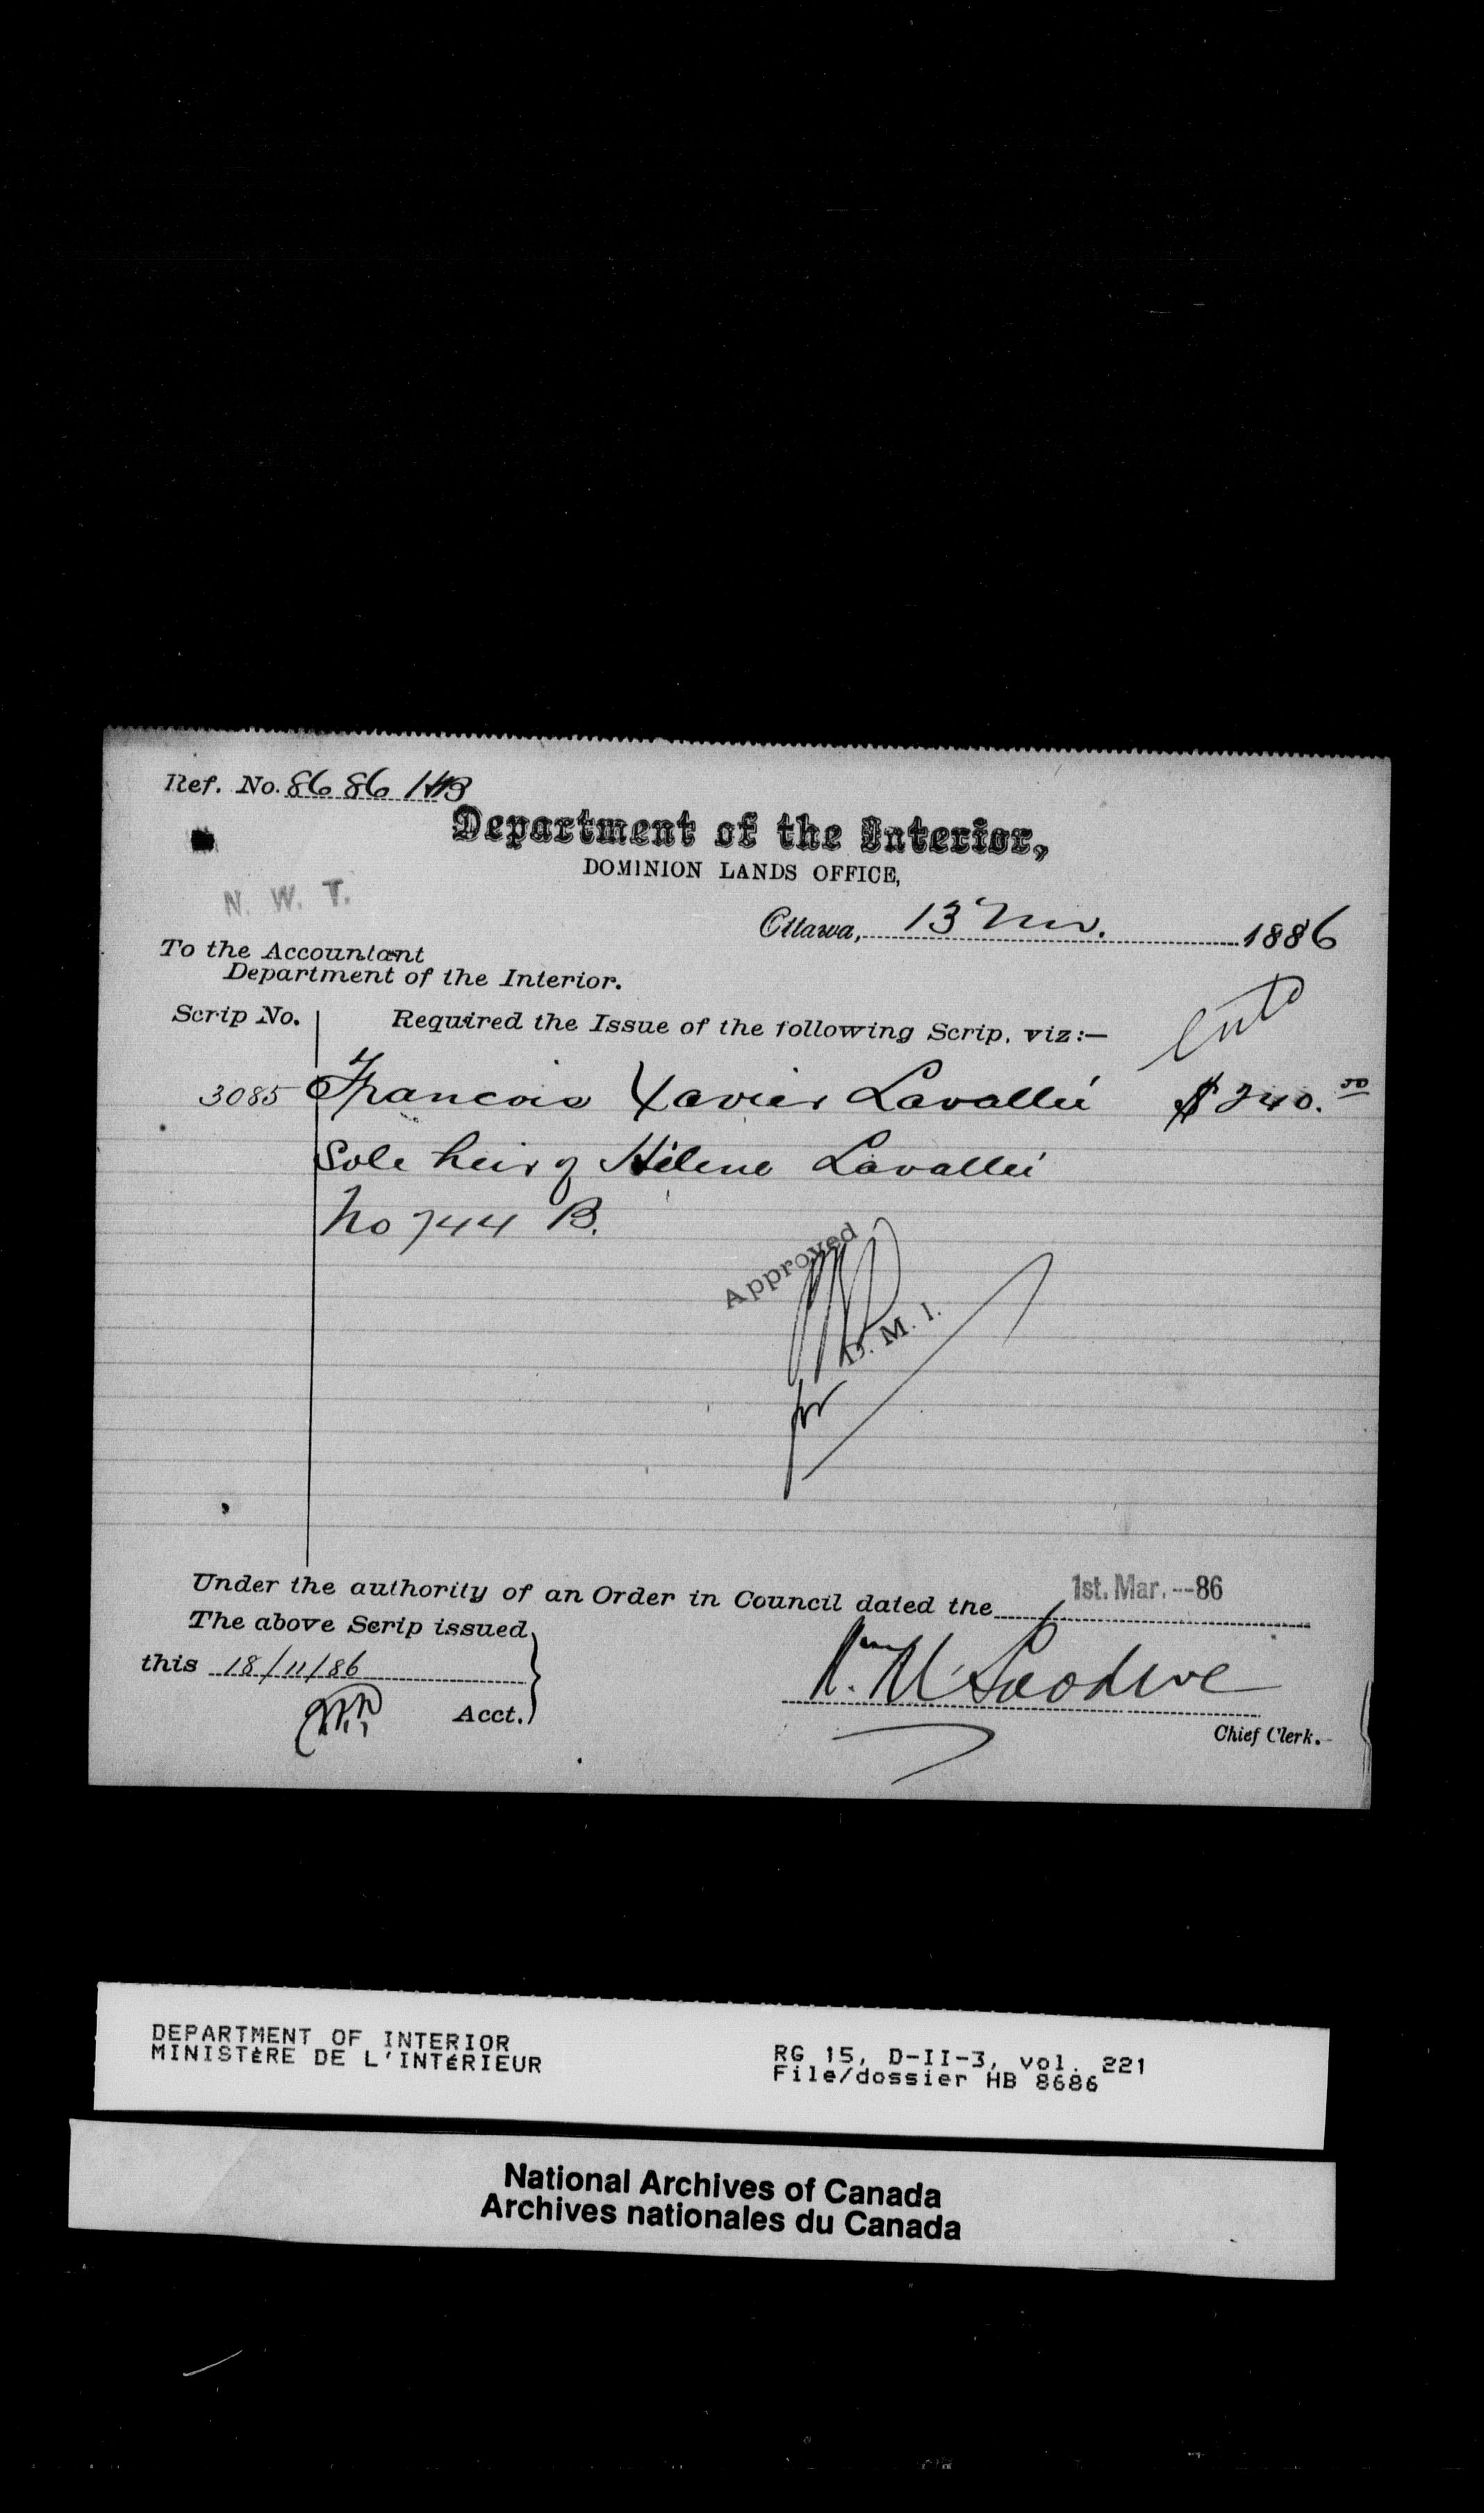 Ref. No. 8686 HB
Department of the Interior,
DOMINION LANDS OFFICE,
N. W. T.
Ottawa, 13 Nov. 1886
To the Accountant
Department of the Interior.
Scrip No. Required the Issue of the following Scrip, viz:—
3085 Francois Xavier Lavallée $ 240.00
Sole heir of Hélene Lavallée
No 744 B.
Approved
D. M. I.
for
Under the authority of an Order in Council dated the 1st. Mar.--86
The above Scrip issued
this 18/11/86
Acct.
Chief Clerk.
DEPARTMENT OF INTERIOR
MINISTÈRE DE L'INTÉRIEUR
RG 15, D-II-3, vol. 221
File/dossier HB 8686
National Archives of Canada
Archives nationales du Canada